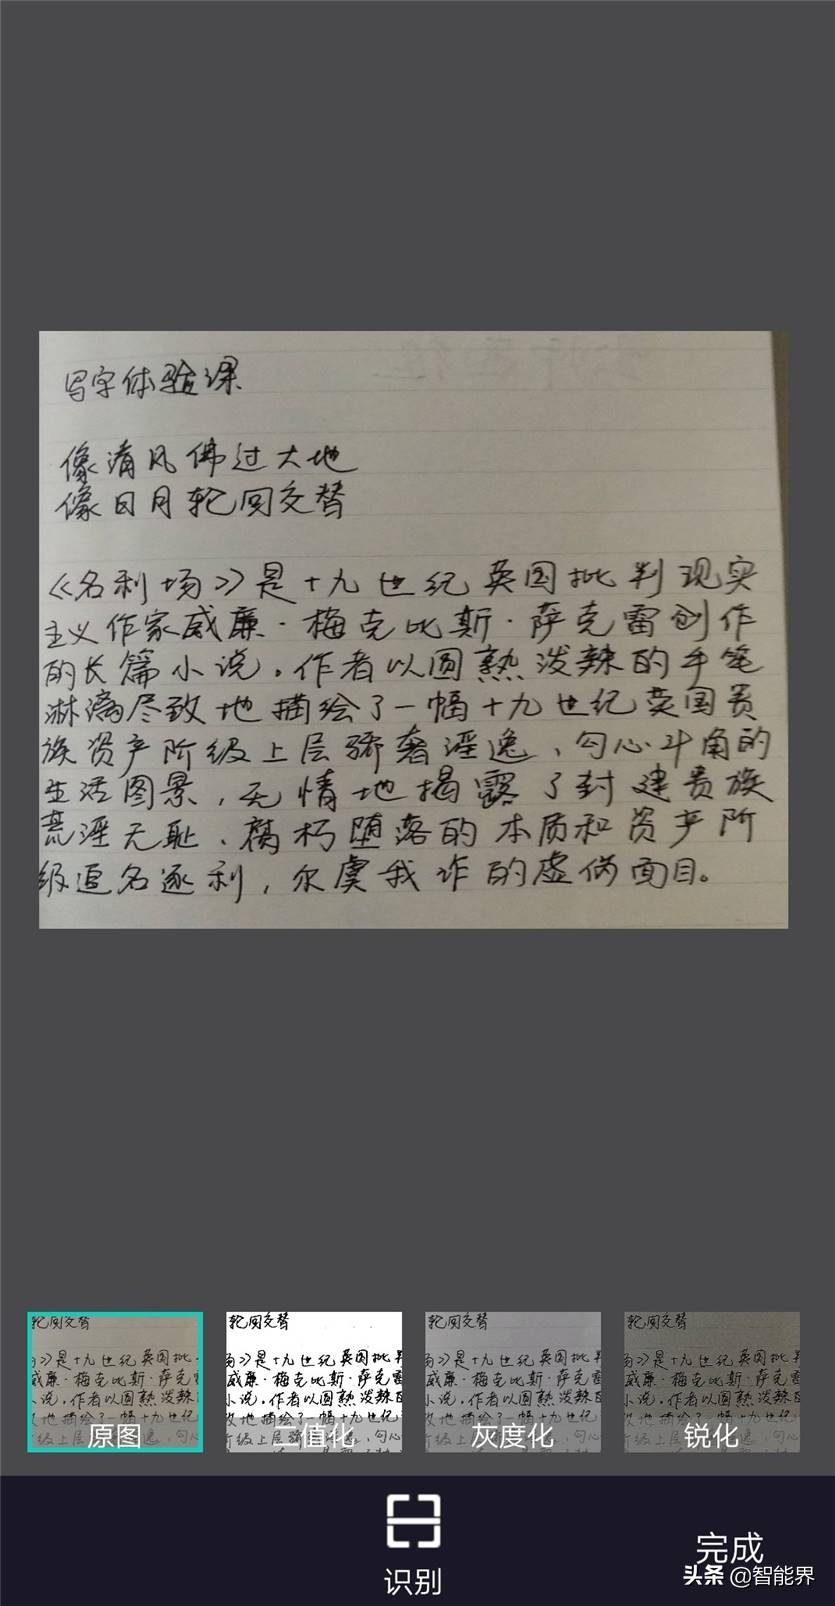 写字体验课
像清风佛过大地
像日月轮回交替
《名利场》是十九世纪英国批判现实
主义作家威廉·梅克比斯·萨克雷创作
的长篇小说。作者以圆熟泼辣的手笔
淋漓尽致地描绘了一幅十九世纪英国贵
族资产阶级上层骄奢淫逸、勾心斗角的
生活图景，无情地揭露了封建贵族
荒淫无耻、腐朽堕落的本质和资产阶
级追名逐利，尔虞我诈的虚伪面目。
轮回交替
轮回交替
轮回交替
轮回交替
场》是十九世纪英国批
场》是十九世纪英国批判
场》是十九世纪英国批判
场》是十九世纪英国批判
威廉·梅克比斯·萨克雷
威廉·梅克比斯·萨克雷
威廉·梅克比斯·萨克雷
威廉·梅克比斯·萨克雷
小说。作者以圆熟泼辣
小说。作者以圆熟泼辣
小说。作者以圆熟泼辣
小说。作者以圆熟泼辣
原图
二值化
灰度化
锐化
识别
完成
头条 @智能界